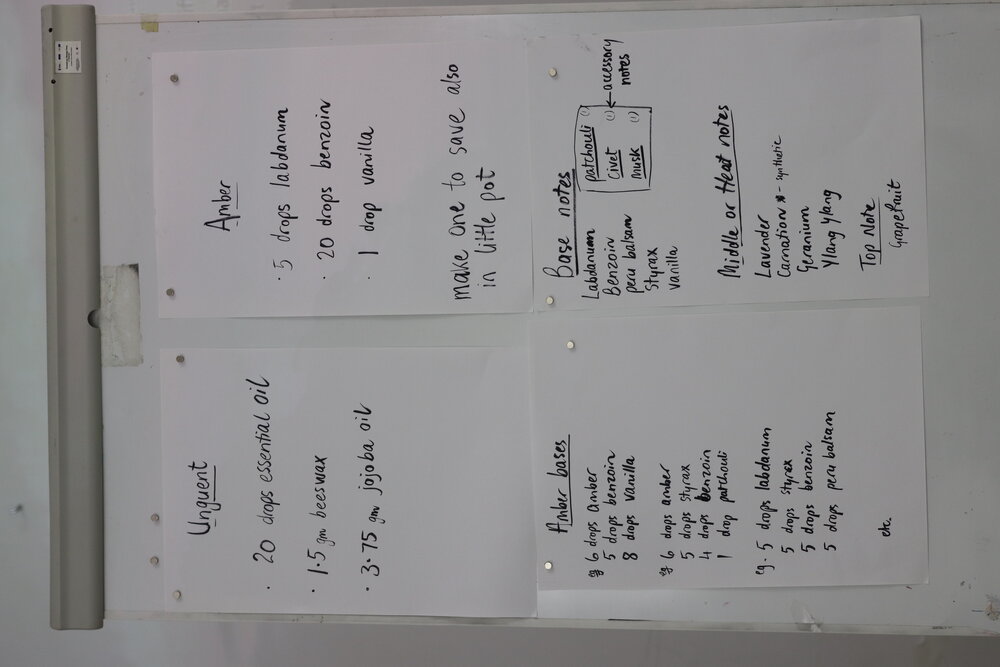 Unguent
· 20 drops essential oil
· 1.5 gm beeswax
· 3.75 gm jojoba oil
Amber
· 5 drops labdanum
· 20 drops benzoin
· 1 drop vanilla
make one to save also
in little pot
Amber bases
eg 6 drops amber
5 drops benzoin
8 drops vanilla
eg 6 drops amber
5 drops styrax
4 drops benzoin
1 drop patchouli
eg. 5 drops labdanum
5 drops styrex
5 drops benzoin
5 drops peru balsam
etc.
Base notes
Labdanum
Benzoin
peru balsam
Styrax
vanilla
patchouli (1)
civet (1)
musk (1)
← accessory
notes
Middle or Heat notes
Lavender
Carnation * - synthetic
Geranium
Ylang Ylang
Top Note
Grapefruit